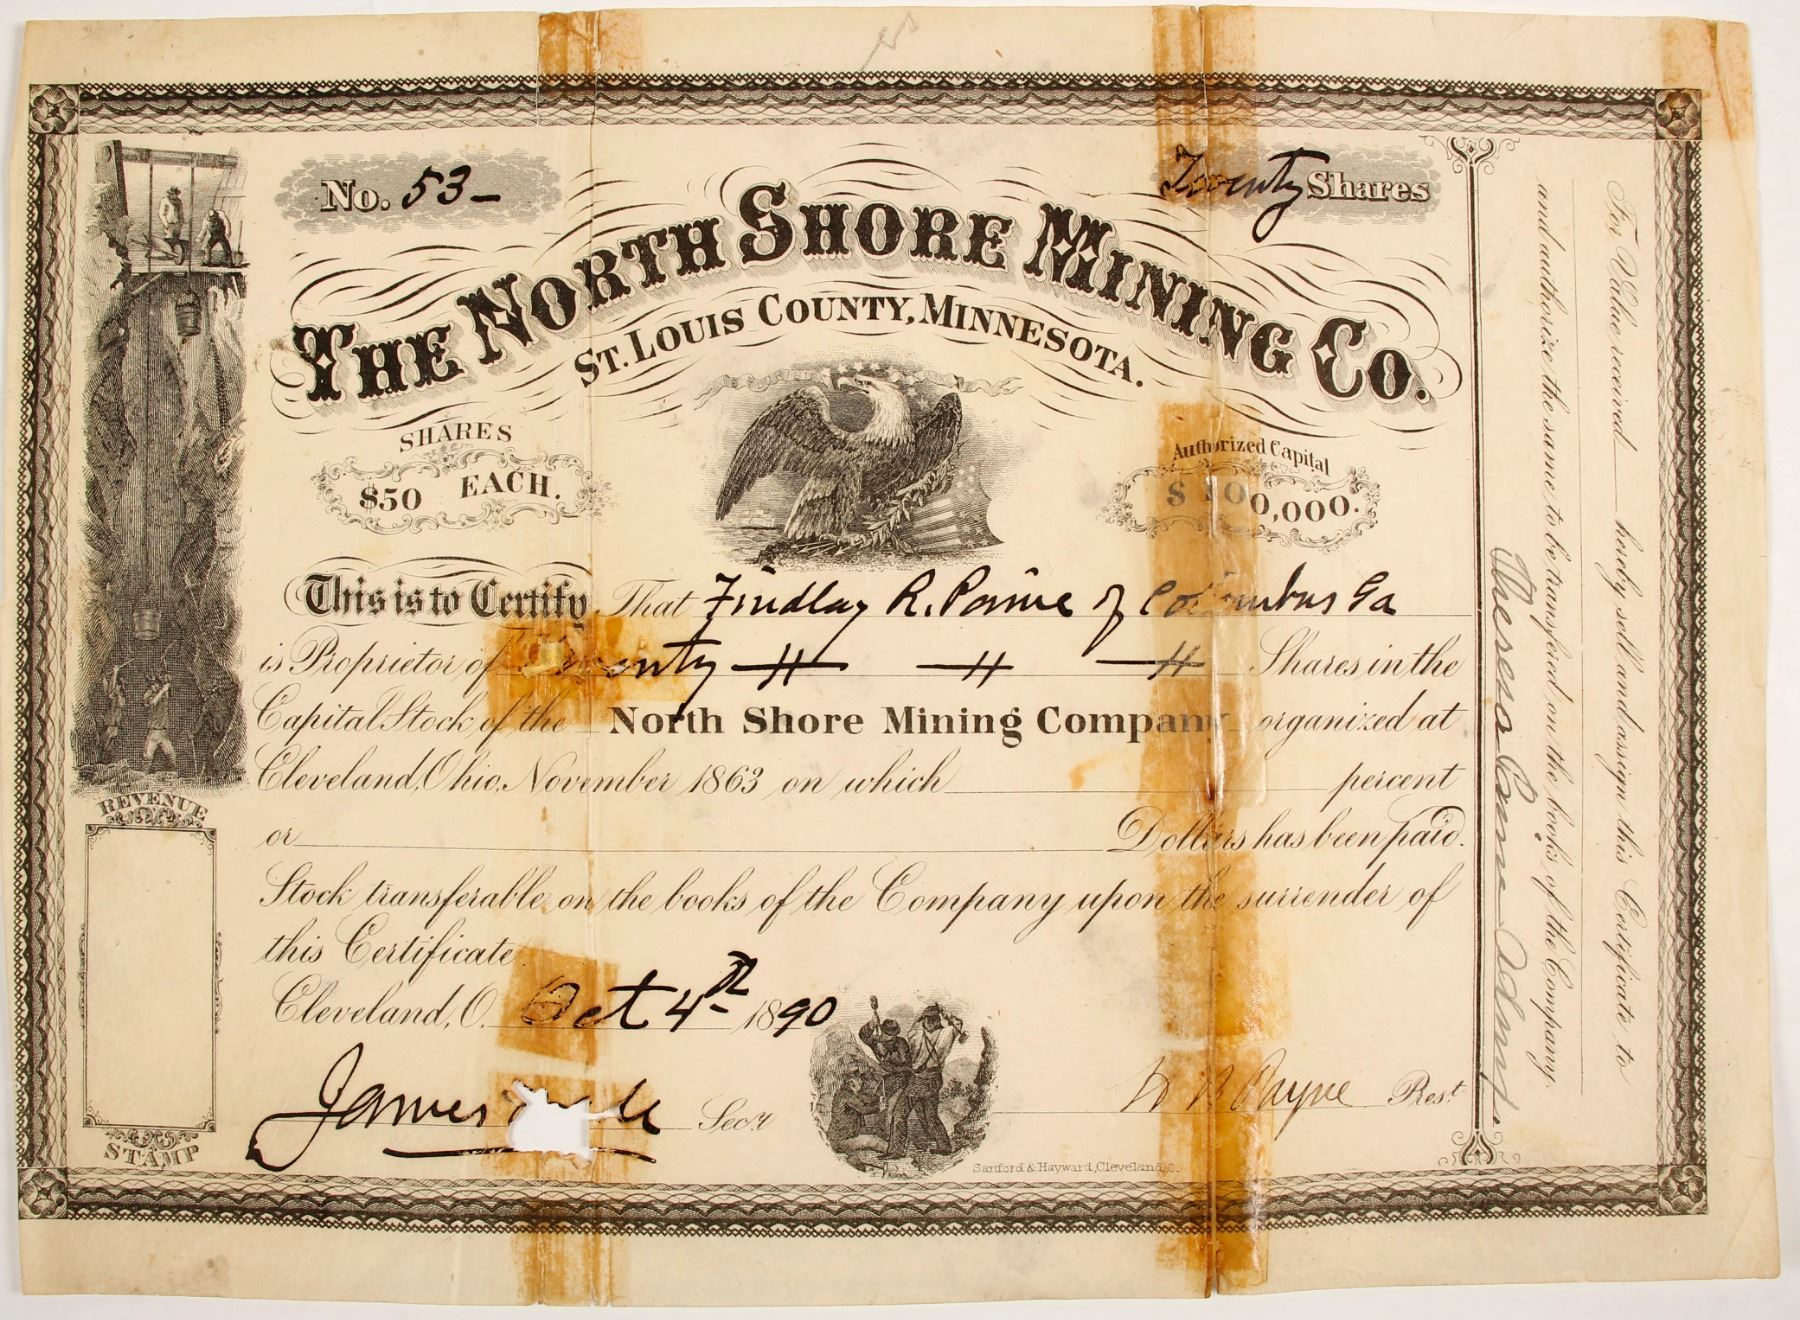 No. 53-
Twenty Shares
THE NORTH SHORE MINING CO.
ST. LOUIS COUNTY, MINNESOTA.
SHARES
$50 EACH.
Authorized Capital
$ 00,000.
This is to Certify That Findlay R. Paine of Columbus Ga
is Proprietor of Twenty — " — — " — — " — Shares in the
Capital Stock of the North Shore Mining Company organized at
Cleveland, Ohio, November 1863 on which percent
or Dollars has been paid.
Stock transferable on the books of the Company upon the surrender of
this Certificate
Cleveland, O. Oct 4th 1890
James Sec'y
H B Payne Prest.
Sanford & Hayward, Cleveland, O.
REVENUE
STAMP
For Value received hereby sell and assign this Certificate to
and authorize the same to be transferred on the books of the Company.
Theresa Paine Adams.